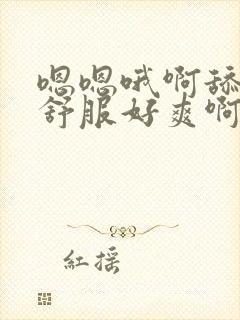 嗯嗯哦啊舔
舒服好爽啊
红摇